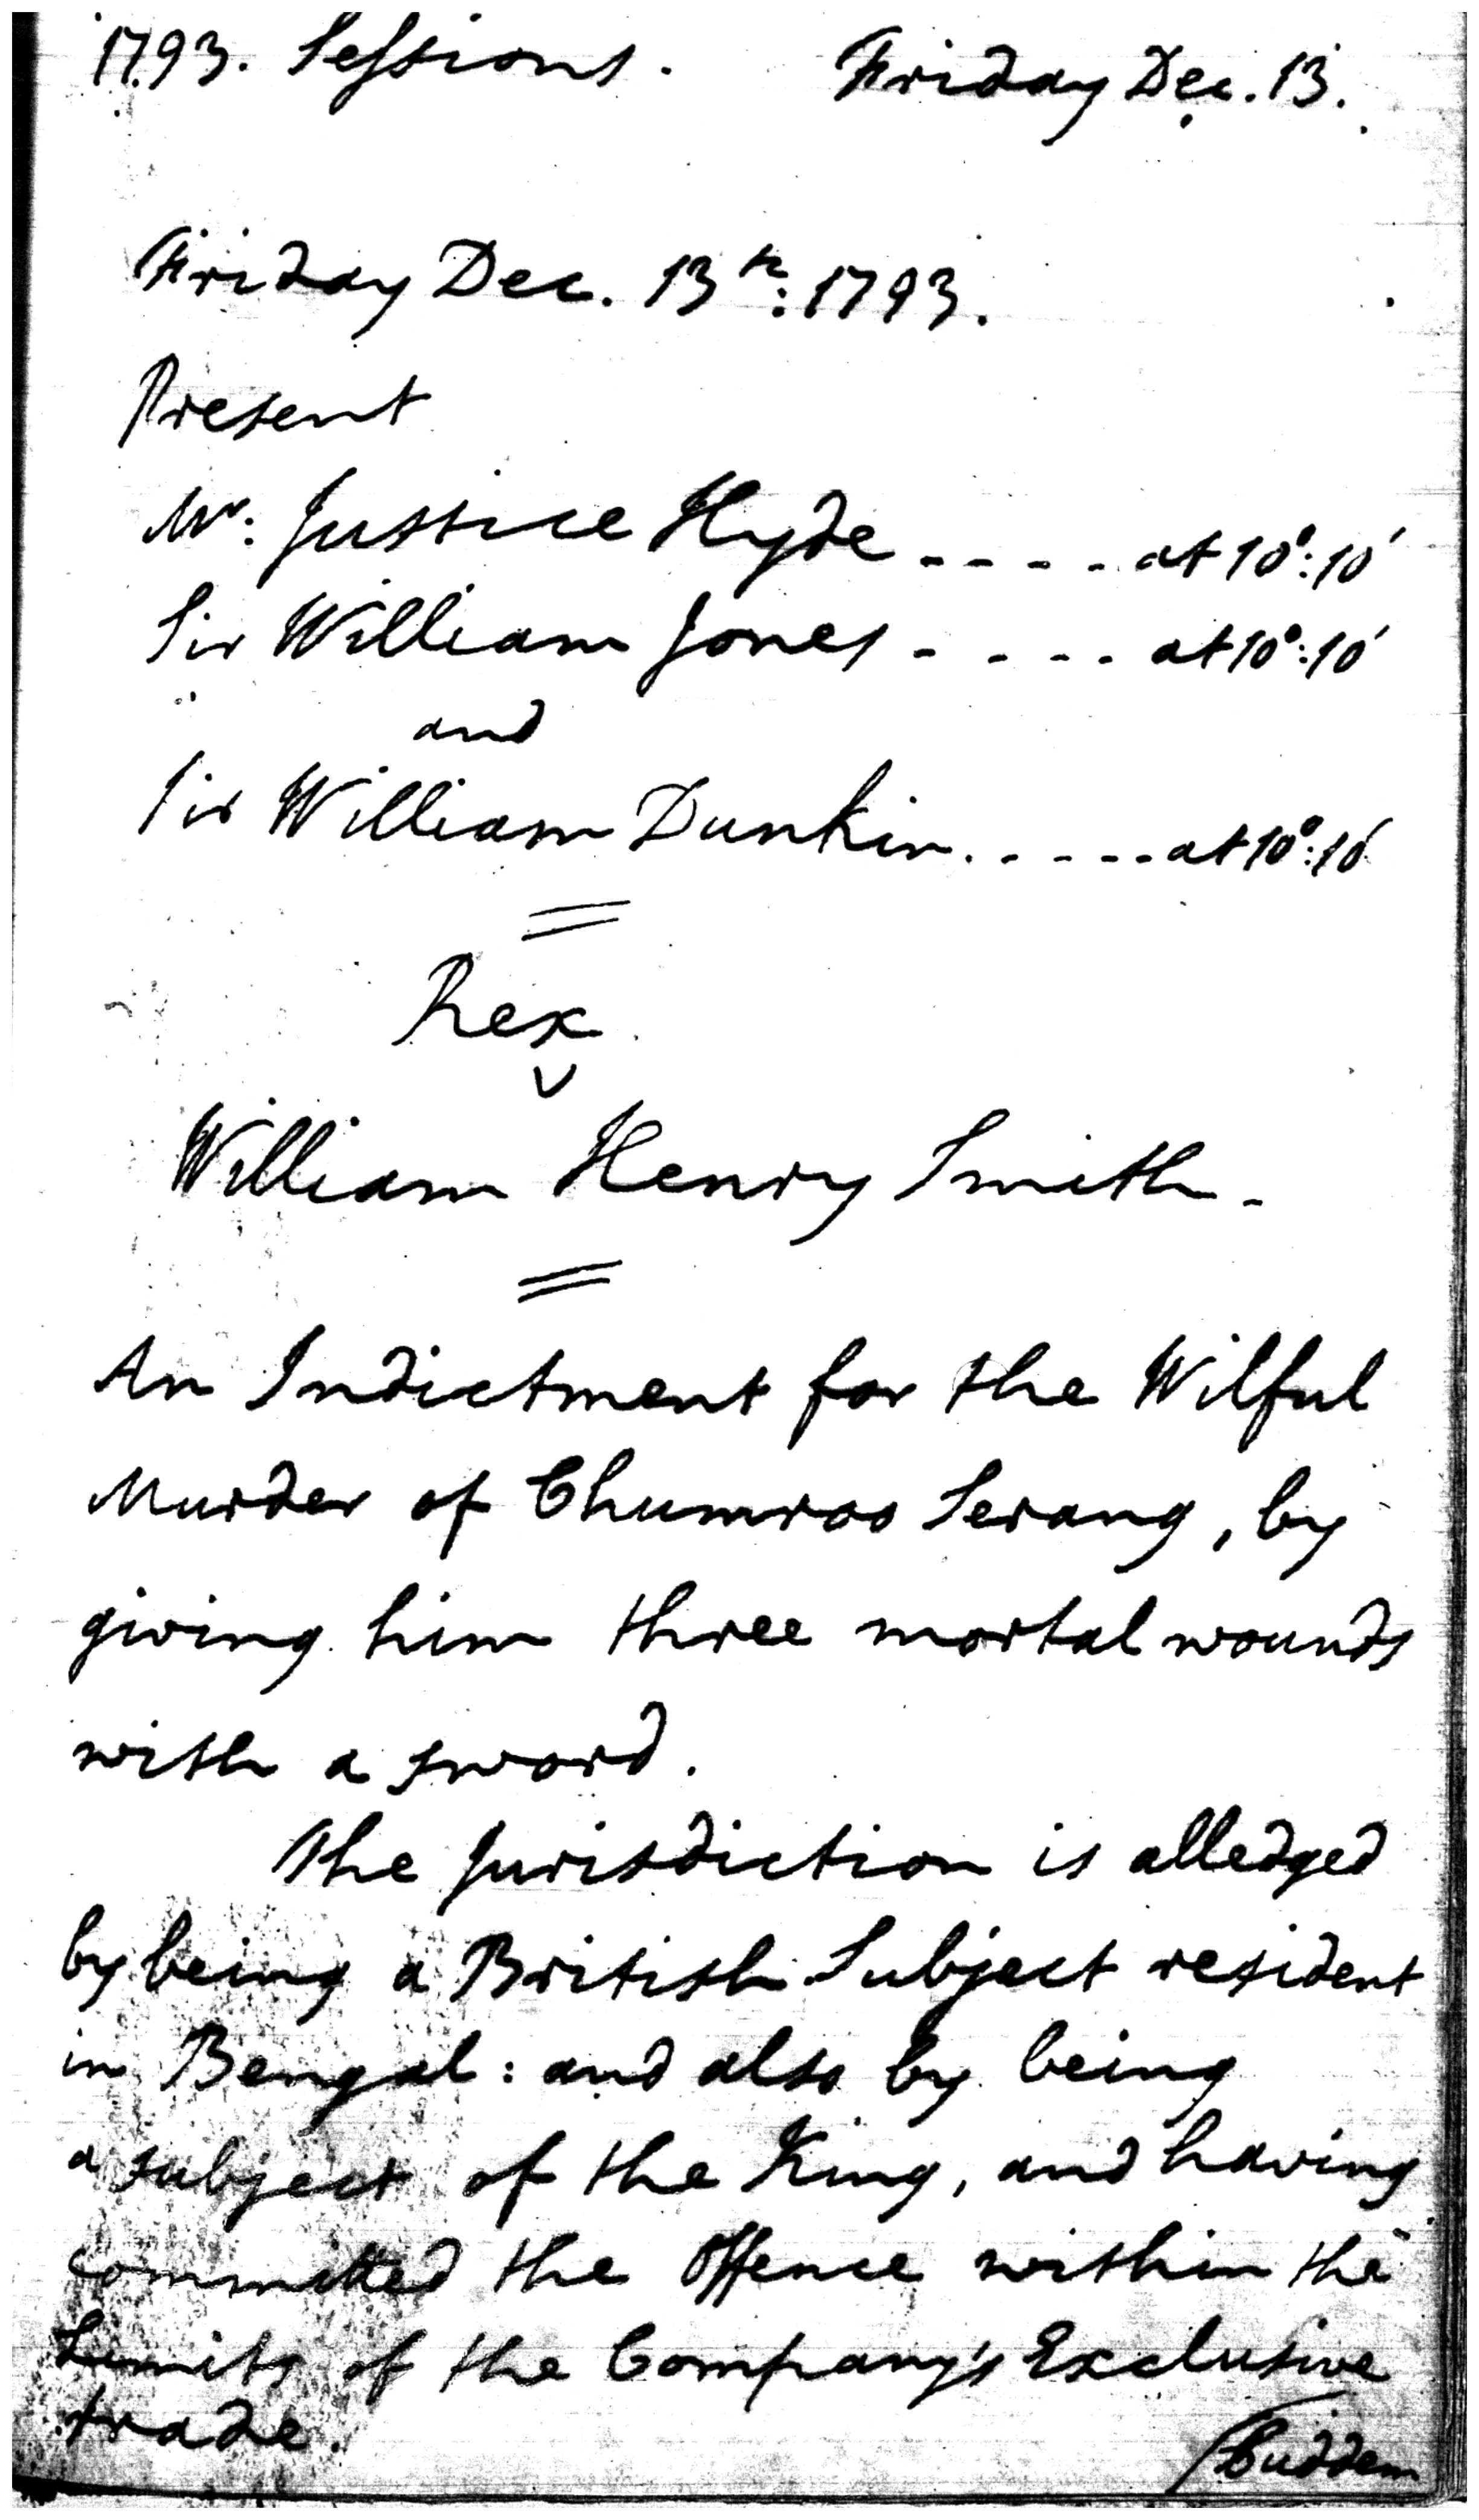 1793. Sessions. Friday Dec. 13.
Friday Dec. 13th: 1793.
Present
Mr: Justice Hyde - - - - at 10°: 10'
Sir William Jones - - - - at 10°: 10'
and
Sir William Dunkin. - - - - at 10°: 10'
Rex
v
William Henry Smith -
An Indictment for the Wilful
Murder of Chumroo Serang, by
giving him three mortal wounds
with a sword.
The Jurisdiction is alledged
by being a British Subject resident
in Bengal: and also by being
a subject of the King, and having
committed the Offence within the
Limits of the Company's Exclusive
trade.